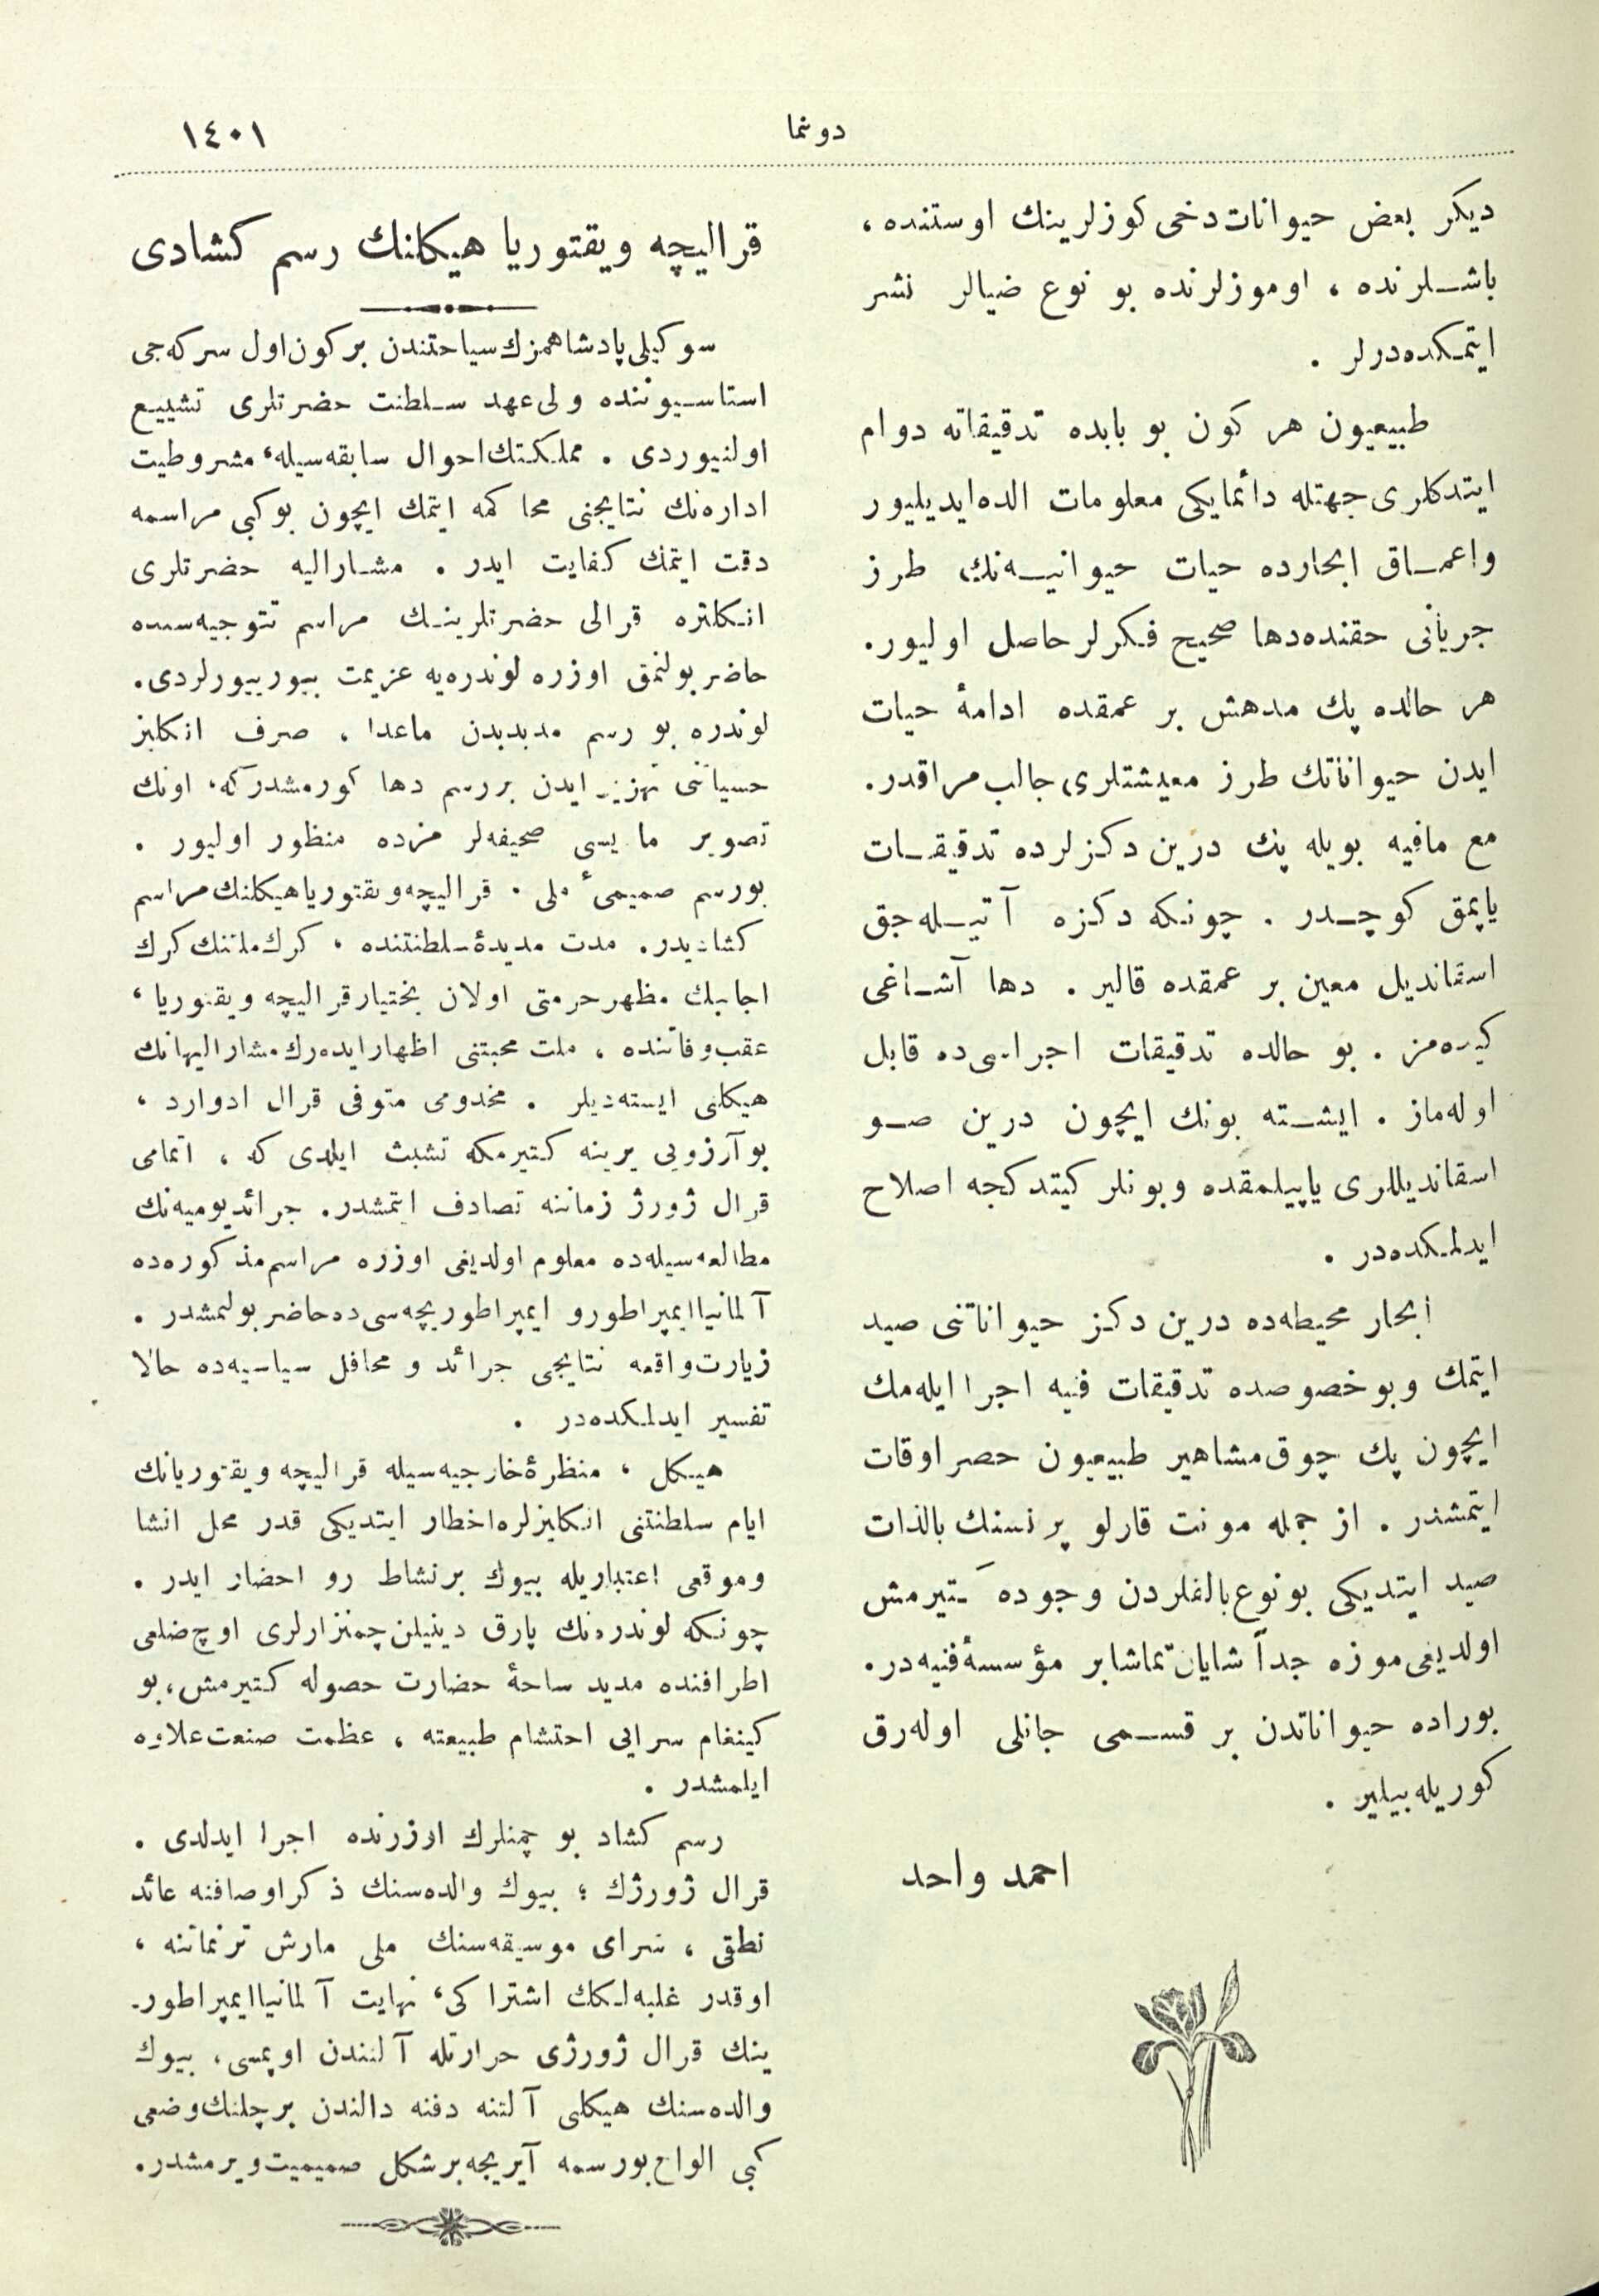 دونما
١٤٠١
ديكر بعض حيوانات دخی كوزلرينك اوستنده ،
باشلرنده ، اوموزلرنده بو نوع ضيالر نشر
ايتمكده‌درلر .
طبيعيون هر كون بو بابده تدقيقاته دوام
ايتدكلری جهتله دائما يكی معلومات الده ايديليور
واعماق ابحارده حيات حيوانيه‌نك طرز
جريانی حقنده دها صحيح فكرلر حاصل اوليور.
هر حالده پك مدهش بر عمقده ادامۀ حيات
ايدن حيواناتك طرز معيشتلری جالب مراقدر.
مع مافيه بويله پك درين دكزلرده تدقيقات
ياپمق كوچدر . چونكه دكزه آتيله‌جق
اسقانديل معين بر عمقده قالير . دها آشاغی
كيره‌مز . بو حالده تدقيقات اجراسی ده قابل
اوله‌ماز . ايشته بونك ايچون درين صو
اسقانديللری ياپيلمقده وبونلر كيتدكجه اصلاح
ايدلمكده‌در .
ابحار محيطه‌ده درين دكز حيواناتنی صيد
ايتمك وبو خصوصده تدقيقات فنيه اجرا ايله‌مك
ايچون پك چوق مشاهير طبيعيون حصر اوقات
ايتمشدر . از جمله مونت قارلو پرنسنك بالذات
صيد ايتديكی بو نوع بالقلردن وجوده كتيرمش
اولديغی موزه جداً شايان تماشا بر مؤسسۀ فنيه‌در.
بوراده حيواناتدن بر قسمی جانلی اوله‌رق
كوريله‌بيلير .
احمد واحد
قراليچه ويقتوريا هيكلنك رسم كشادی
سوكيلی پادشاهمزك سياحتندن بر كون اول سركه‌جی
استاسيوننده ولی عهد سلطنت حضرتلری تشييع
اولنيوردی . مملكتك احوال سابقه‌سيله، مشروطيت
اداره‌نك نتايجنی محاكمه ايتمك ايچون بو كبی مراسمه
دقت ايتمك كفايت ايدر . مشاراليه حضرتلری
انكلتره قرالی حضرتلرينك مراسم تتوجيه‌سنده
حاضر بولنمق اوزره لوندره‌يه عزيمت بيوريیورلردی.
لوندره بو رسم مدبدبدن ماعدا ، صرف انكليز
حسياتنی تهزيز ايدن بر رسم دها كورمشدر كه، اونك
تصوير مايسی صحيفه‌لرمزده منظور اوليور .
بو رسم صميمیٔ ملی ، قراليچه ويقتوريا هيكلنك مراسم
كشاديدر. مدت مديدۀ سلطنتنده ، كرك ملتنك كرك
اجانبك مظهر حرمتی اولان بختيار قراليچه ويقتوريا ،
عقب وفاتنده ، ملت محبتنی اظهار ايده‌رك مشاراليهانك
هيكلی ايسته‌ديلر . مخدومی متوفی قرال ادوارد ،
بو آرزويی يرينه كتيرمكه تشبث ايلدی كه ، اتمامی
قرال ژورژ زماننه تصادف ايتمشدر. جرائد يوميه‌نك
مطالعه‌سيله‌ده معلوم اولديغی اوزره مراسم مذكوره‌ده
آلمانيا ايمپراطورو ايمپراطوريچه‌سی ده حاضر بولنمشدر .
زيارت واقعه نتايجی جرائد و محافل سياسيه‌ده حالا
تفسير ايدلمكده‌در .
هيكل ، منظرۀ خارجيه‌سيله قراليچه ويقتوريانك
ايام سلطنتنی انكليزلره اخطار ايتديكی قدر محل انشا
وموقعی اعتباريله بيوك بر نشاط رو احضار ايدر .
چونكه لوندره‌نك پارق دينيلن چمنزارلری اوچ ضلعی
اطرافنده مديد ساحۀ حضارت حصوله كتيرمش، بو
كينغام سرايی احتشام طبيعته ، عظمت صنعت علاوه
ايلمشدر .
رسم كشاد بو چمنلرك اوزرنده اجرا ايدلدی .
قرال ژورژك ؛ بيوك والده‌سنك ذكر اوصافنه عائد
نطقی ، سرای موسيقه‌سنك ملی مارش ترنماتنه ،
اوقدر غلبه‌لكك اشتراكی، نهايت آلمانيا ايمپراطور-
ينك قرال ژورژی حرارتله آلنندن اوپمسی، بيوك
والده‌سنك هيكلی آلتنه دفنه دالندن بر چلنك وضعی
كبی الواح بو رسمه آيريجه بر شكل صميميت ويرمشدر.